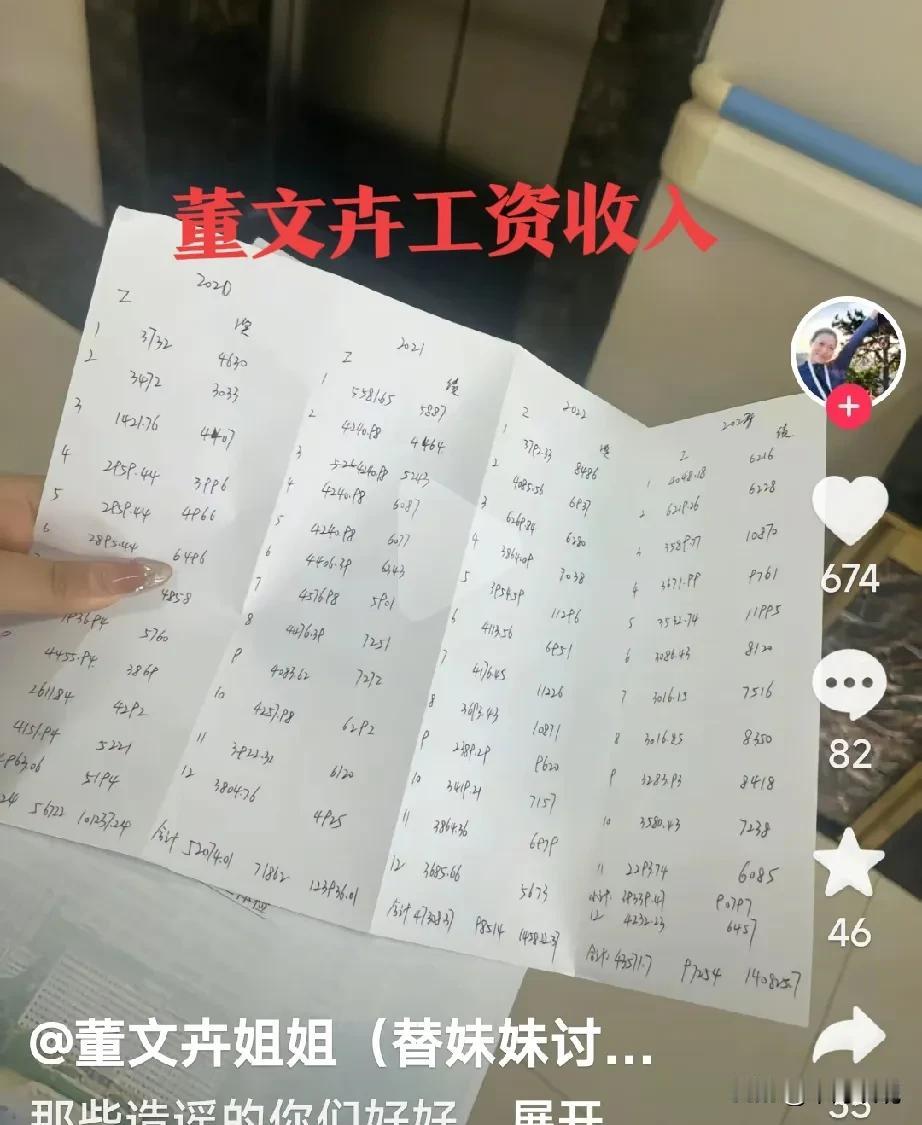 董文卉工资收入
2020
Z 绩
1 3732 4630
2 3472 3033
3 1421.76 4407
4 2959.44 3996
5 2959.44 4966
6 2895.44 6496
4858
1936.94 5760
4455.94 3869
2611.84 4292
4151.94 5221
4963.06 5194
56722 101237.24
2021
Z 绩
1 5581.65 5887
2 4240.98 4464
3 4240.98 5243
4 4240.98 6087
5 4240.98 6077
6 4406.39 6343
7 4576.98 5901
8 4476.39 7251
9 4083.62 7272
10 4257.98 6292
11 3822.32 6120
12 3804.76 4925
合计 52074.01 71862 123936.01
2022
Z 绩
1 3792.33 8486
2 4085.56 6937
3 6269.84 6280
4 3864.09 7038
5 3959.59 11296
6 4113.56 6951
7 4176.45 11226
8 3693.43 10871
9 2389.29 9620
10 3419.21 7157
11 3864.36 6979
12 3685.66 5673
合计 47308.37 98514 145822.37
Z 绩
1 4048.18 6216
2 6219.26 6228
3 3589.77 10870
4 3671.99 9761
5 3532.74 11995
6 3086.43 8120
7 3016.15 7516
8 3016.85 8350
9 3283.93 8418
10 3580.43 7238
11 2293.74 6085
小计 39339.47 90797
12 4232.23 6457
合计 43571.7 97254 140825.7
674
82
46
@董文卉姐姐（替妹妹讨...
那些造谣的你们好好... 展开